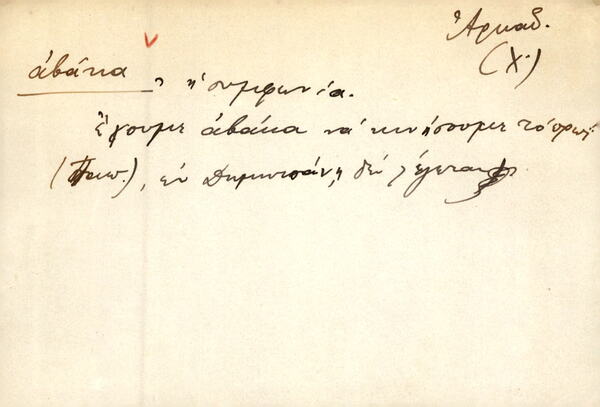 Ἀρκαδ.
(Χ.)
ἀβάκα, ἡ συμφωνία.
Ἔχουμε ἀβάκα νὰ κινήσουμε τὸ πρωΐ
ἐν Δημητσάνῃ δὲν λέγεται